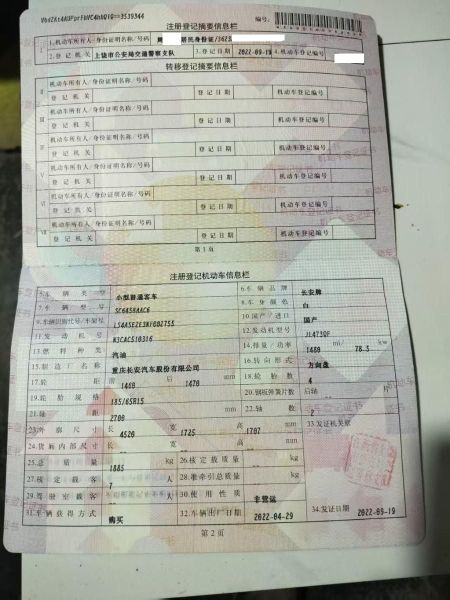 注册登记摘要信息栏
编号:
1.机动车所有人/身份证明名称/号码 居民身份证/3623
2.登记机关 上饶市公安局交通警察支队 3.登记日期 2022-09-19 4.机动车登记编号
转移登记摘要信息栏
机动车所有人/身份证明名称/号码
登记机关 登记日期 机动车登记编号
机动车所有人/身份证明名称/号码
登记机关 登记日期 机动车登记编号
机动车所有人/身份证明名称/号码
登记机关 登记日期 机动车登记编号
机动车所有人/身份证明名称/号码
登记机关 登记日期 机动车登记编号
机动车所有人/身份证明名称/号码
登记机关 登记日期 机动车登记编号
第1页
注册登记机动车信息栏
5.车辆类型 小型普通客车 6.车辆品牌 长安牌
7.车辆型号 SC6458AAC6 8.车身颜色 白
9.车辆识别代号/车架号 10.国产/进口 国产
11.发动机号 12.发动机型号 JL473QF
13.燃料种类 汽油 14.排量/功率 ml/ kw
15.制造厂名称 重庆长安汽车股份有限公司 16.转向形式 方向盘
17.轮距 前 后 1470 mm 18.轮胎数 4
19.轮胎规格 185/65R15 20.钢板弹簧片数 后轴 片
21.轴距 2780 mm 22.轴数 2
23.外廓尺寸 长 4520 宽 1725 高 1707 mm 33.发证机关章
24.货厢内部尺寸 长 宽 高 mm
25.总质量 1885 kg 26.核定载质量 kg
27.核定载客 7 人 28.准牵引总质量 kg
29.驾驶室载客 人 30.使用性质 非营运
31.车辆获得方式 购买 32.车辆出厂日期 2022-04-29 34.发证日期 2022-09-19
第2页